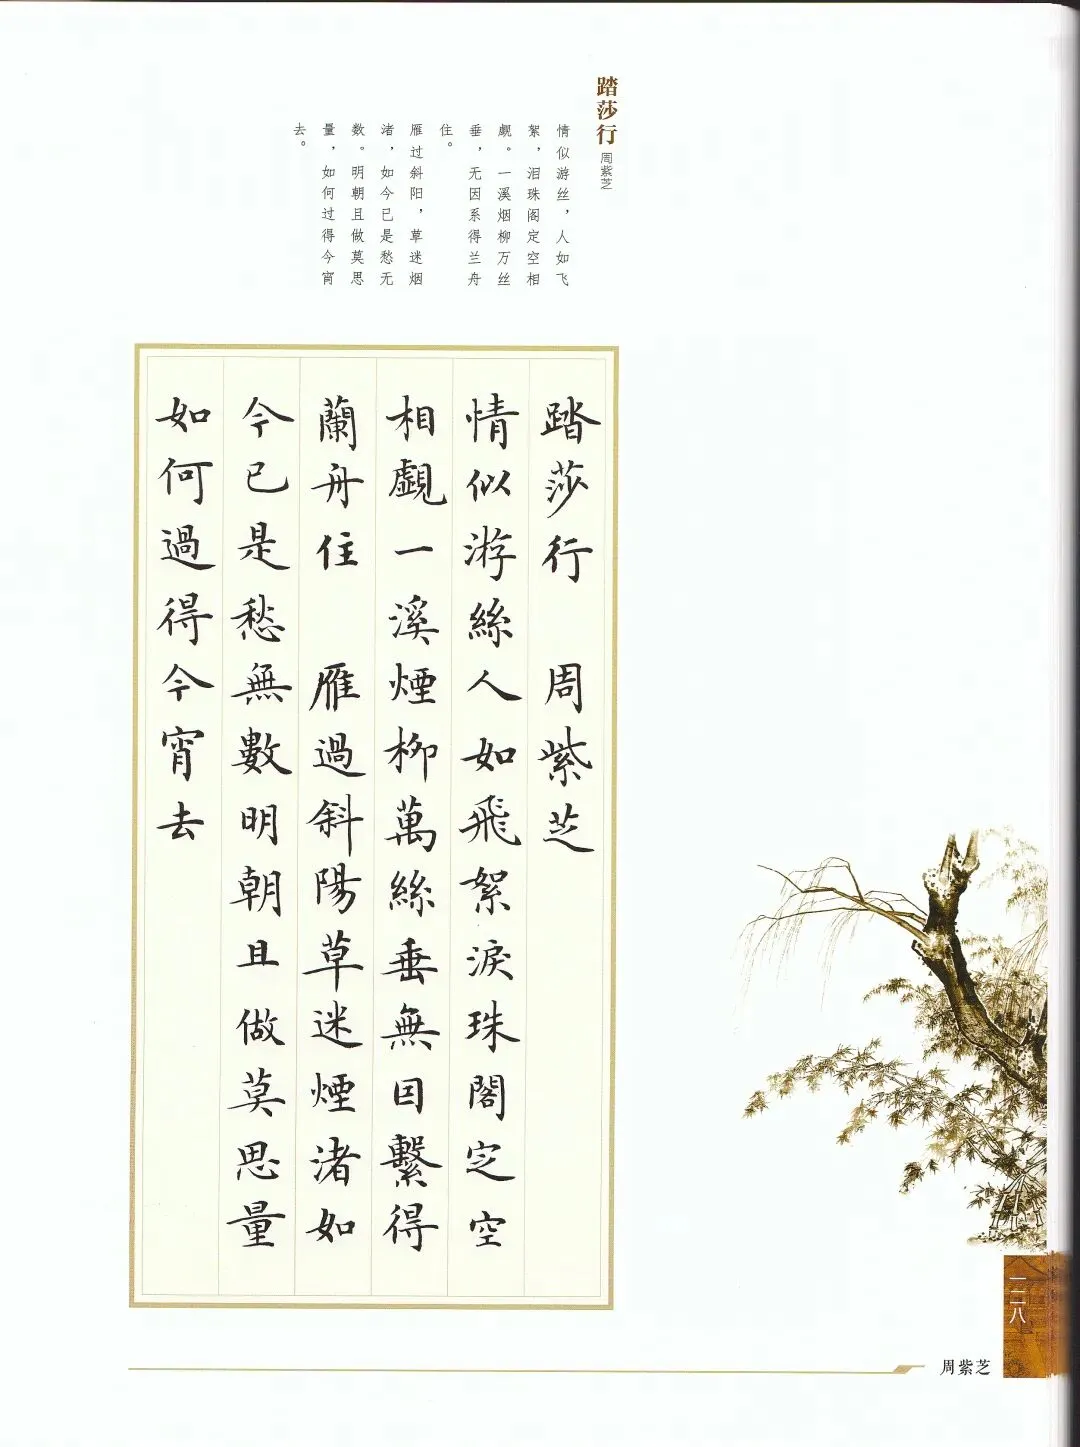 踏莎行 周紫芝
情似游丝，人如飞
絮，泪珠阁定空相
觑。一溪烟柳万丝
垂，无因系得兰舟
住。
雁过斜阳，草迷烟
渚，如今已是愁无
数。明朝且做莫思
量，如何过得今宵
去。
踏莎行 周紫芝
情似游絲人如飛絮淚珠閣定空
相覷一溪煙柳萬絲垂無因繫得
蘭舟住 雁過斜陽草迷煙渚如
今已是愁無數明朝且做莫思量
如何過得今宵去
一二八
周紫芝